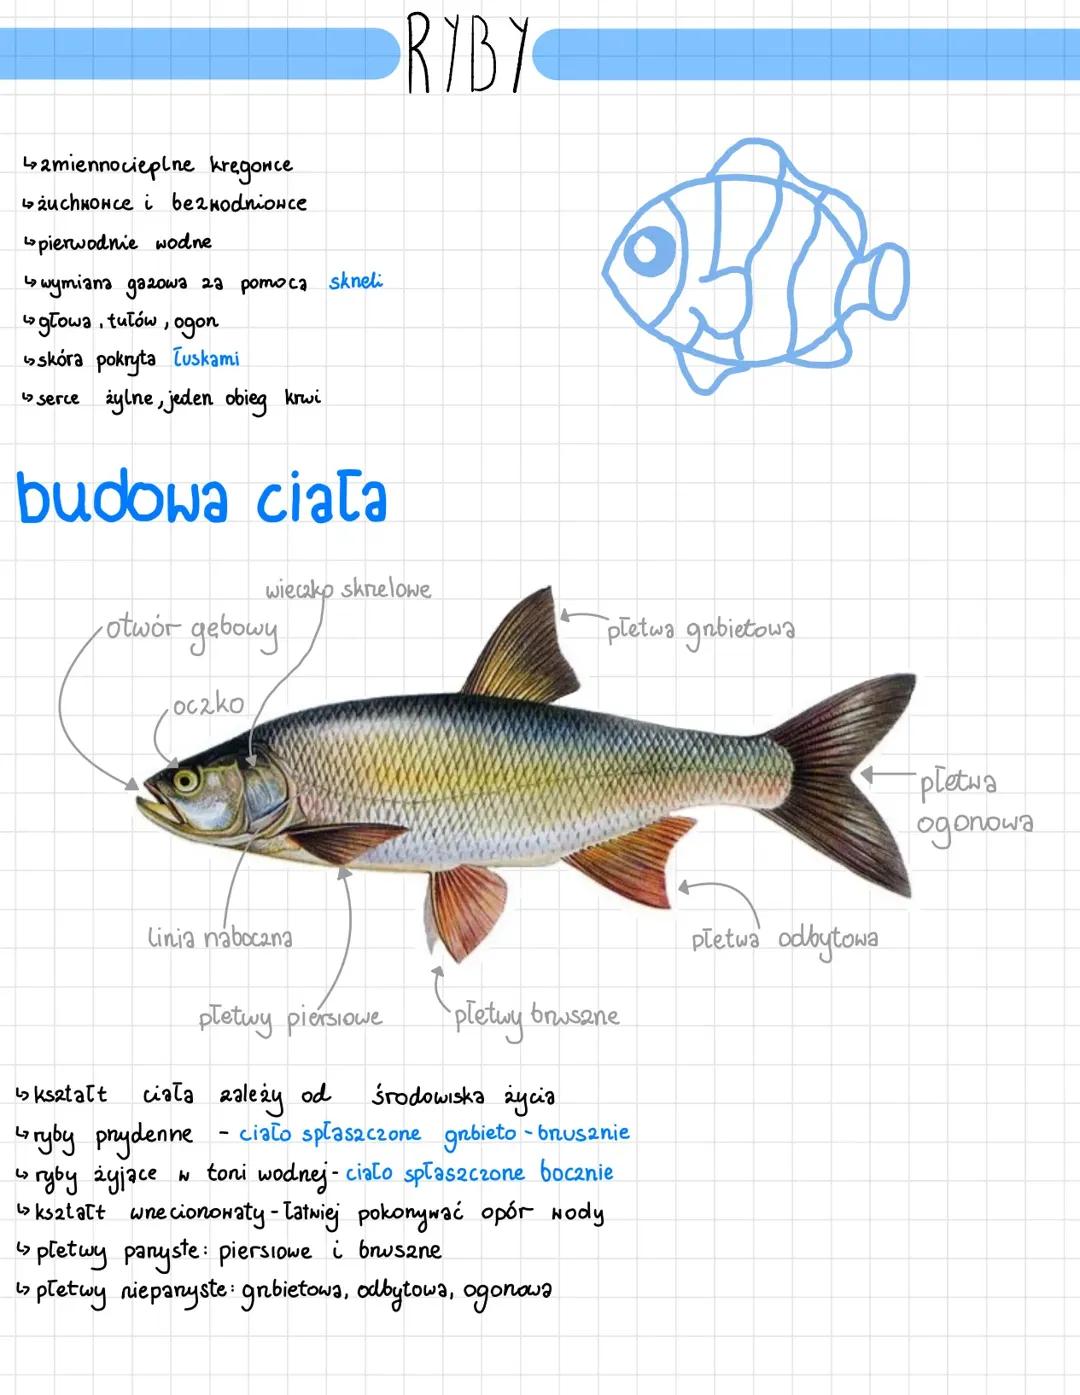 RYBY
↳zmiennocieplne kręgowce
↳żuchwowce i bezwodniowce
↳pierwodnie wodne
↳wymiana gazowa za pomocą skrzeli
↳głowa, tułów, ogon
↳skóra pokryta łuskami
↳serce żylne, jeden obieg krwi
budowa ciała
wieczko skrzelowe
otwór gębowy
płetwa grzbietowa
oczko
płetwa
ogonowa
linia naboczna
płetwa odbytowa
płetwy piersiowe
płetwy brzuszne
↳kształt ciała zależy od środowiska życia
↳ryby przydenne - ciało spłaszczone grzbieto-brzusznie
↳ryby żyjące w toni wodnej- ciało spłaszczone bocznie
↳kształt wrzecionowaty-łatwiej pokonywać opór wody
↳płetwy parzyste: piersiowe i brzuszne
↳płetwy nieparzyste: grzbietowa, odbytowa, ogonowa